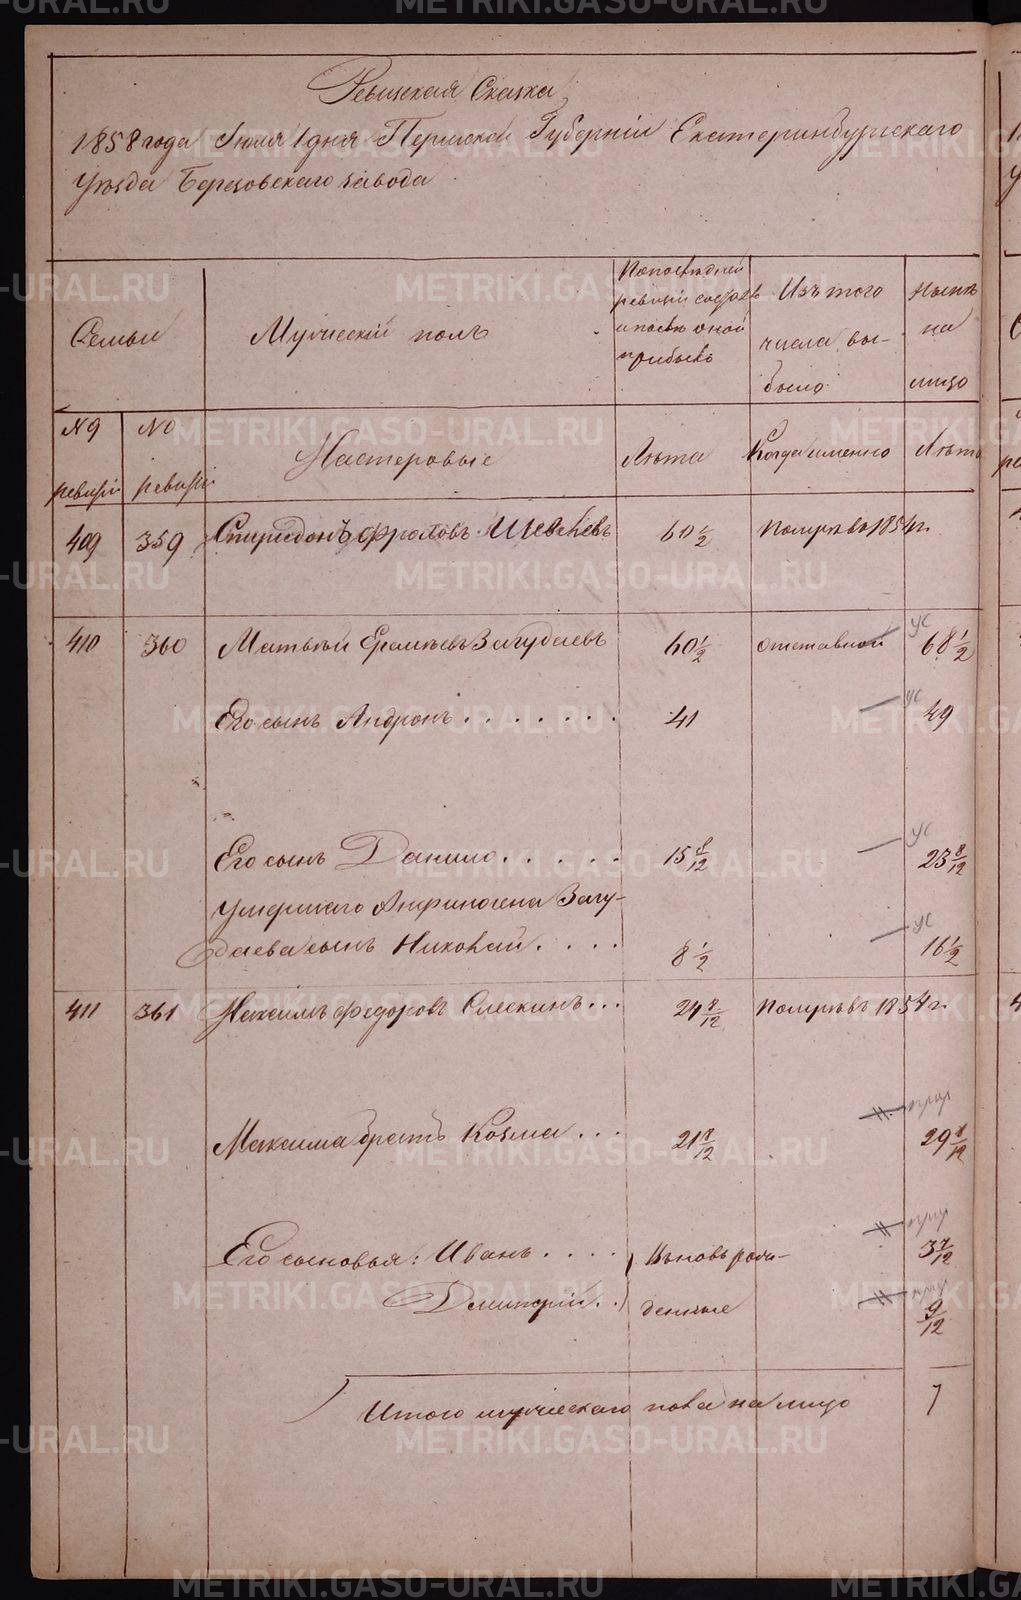 Ревизская Сказка
1858 года Июля 1 дня Пермской Губерніи Екатеринбургскаго
Уѣзда Березовскаго завода
Семьи
Мужескій полъ
По последней
ревизіи состояло
и послѣ оной
прибыло
Изъ того
числа вы-
было
Нынѣ
на
лицо
№
ревизіи
№
ревизіи
Мастеровые
Лѣта
Когда именно
Лѣта
409 359 Спиридонъ Фроловъ 60 1/2 Померъ въ 1854 г.
410 360 Матвѣй Еремѣевъ Загудаевъ 60 1/2 отставной ус 68 1/2
Его сынъ Андронъ........ 41 ус 49
Его сынъ Данило...... 15 8/12 ус 23 8/12
Умершаго Анфиногена Загу-
даева сынъ Николай.... 8 1/2 ус 16 1/2
411 361 Максимъ Федоровъ... 24 7/12 Померъ въ 1854 г.
Максима братъ Козма... 21 8/12 29 8/12
Его сыновья: Иванъ.... Вновь рож- 3 7/12
Дмитрій.. денные 9/12
Итого мужескаго пола на лицо 7
METRIKI.GASO-URAL.RU